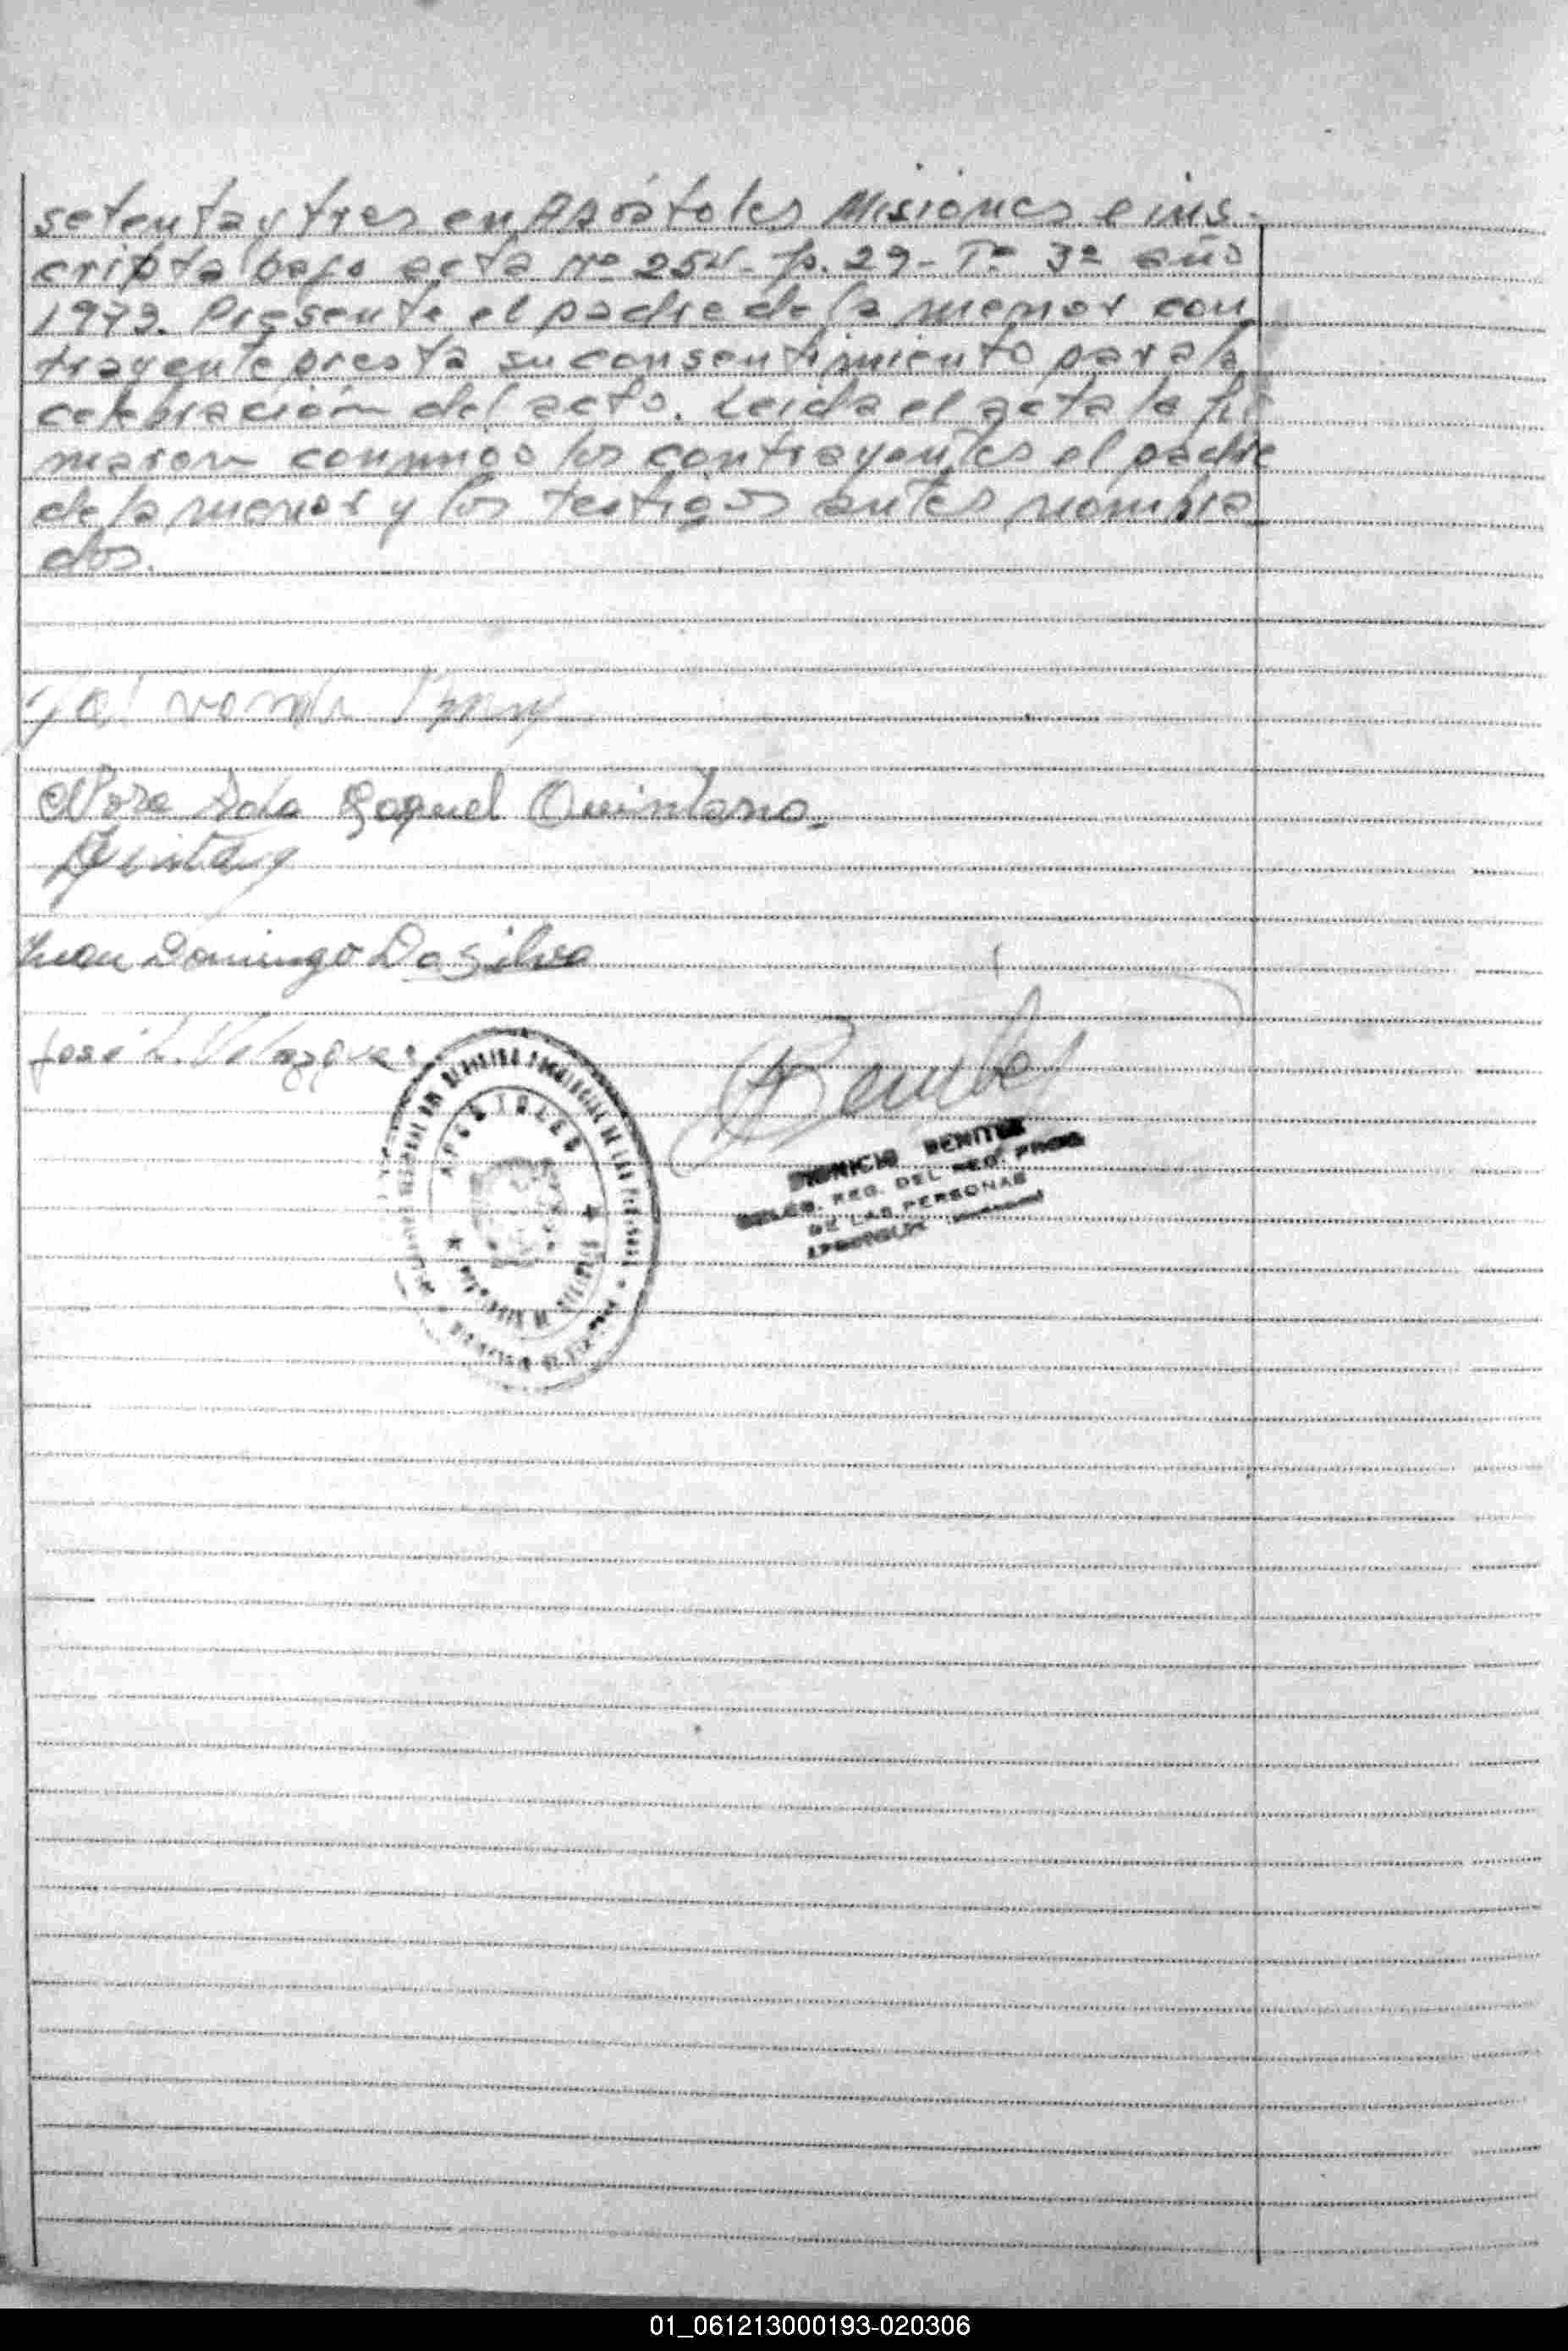 setenta y tres en Apóstoles Misiones e ins-
cripta bajo acta nº 254- fo. 29- Tº 3º año
1973. Presente el padre de la menor con
trayente presta su consentimiento para la
celebración del acto. Leida el acta la fir
maron conmigo los contrayentes el padre
de la menor y los testigos antes nombra
dos.
Nora Raquel Quintana.
Juan Domingo Da Silva
José L. Velazquez
APOSTOLES
DIONICIO BENITEZ
DELEG. REG. DEL REG. PROV.
DE LAS PERSONAS
01_061213000193-020306